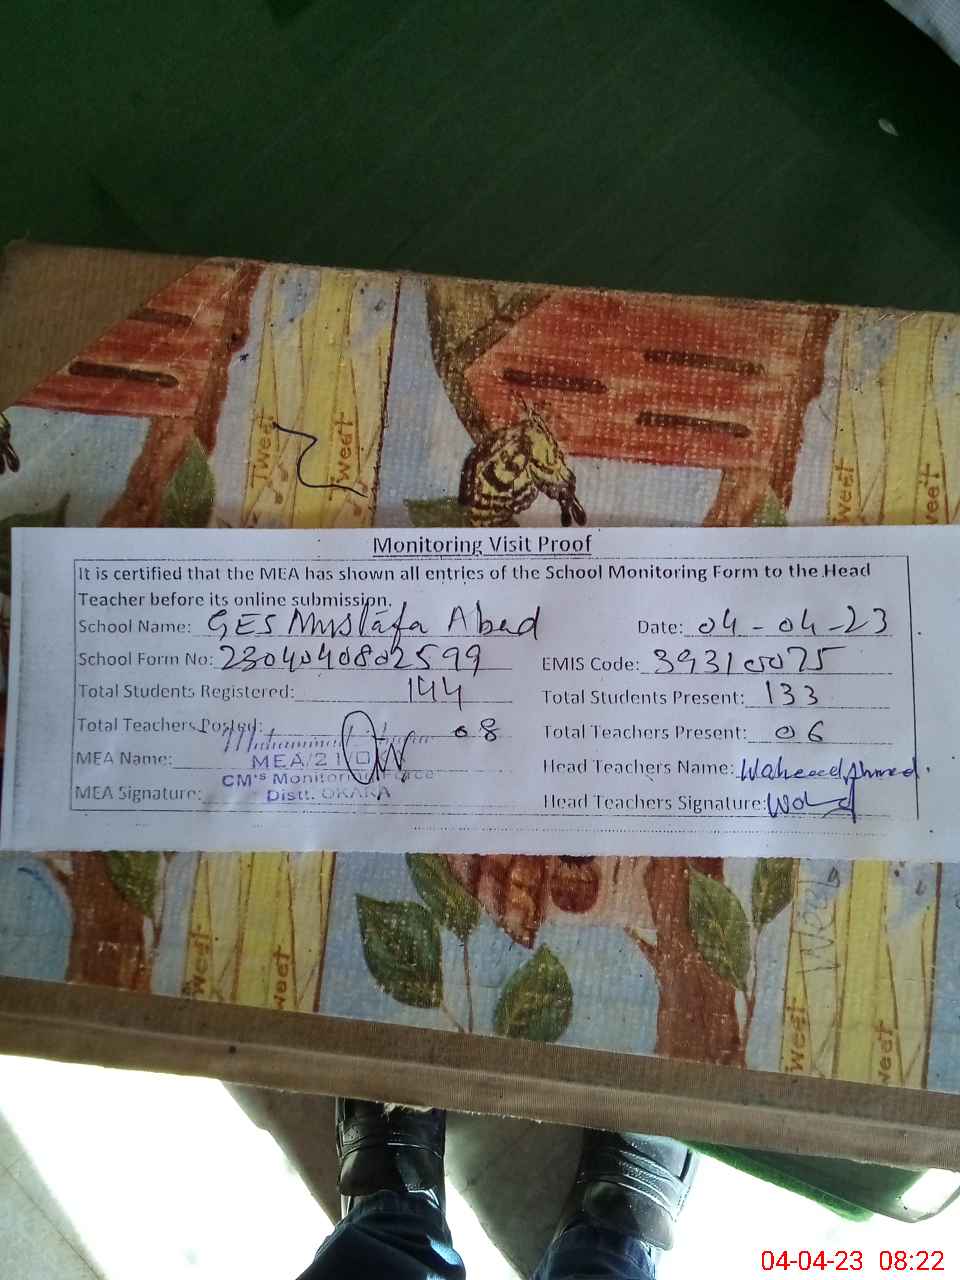 Tweet
Tweet
Weet
Weet
Monitoring Visit Proof
It is certified that the MEA has shown all entries of the School Monitoring Form to the Head
Teacher before its online submission.
School Name: GES Mustafa Abad Date: 04-04-23
School Form No: 2304040802599 EMIS Code: 39310075
Total Students Registered: 144 Total Students Present: 133
Total Teachers Posted: 08 Total Teachers Present: 06
MEA Name: Muhammad
MEA/21 Head Teachers Name: Waheed Ahmed.
CM's Monitoring Force
MEA Signature: Distt. OKARA Head Teachers Signature:
Weet
weet
Weet
weet
04-04-23 08:22